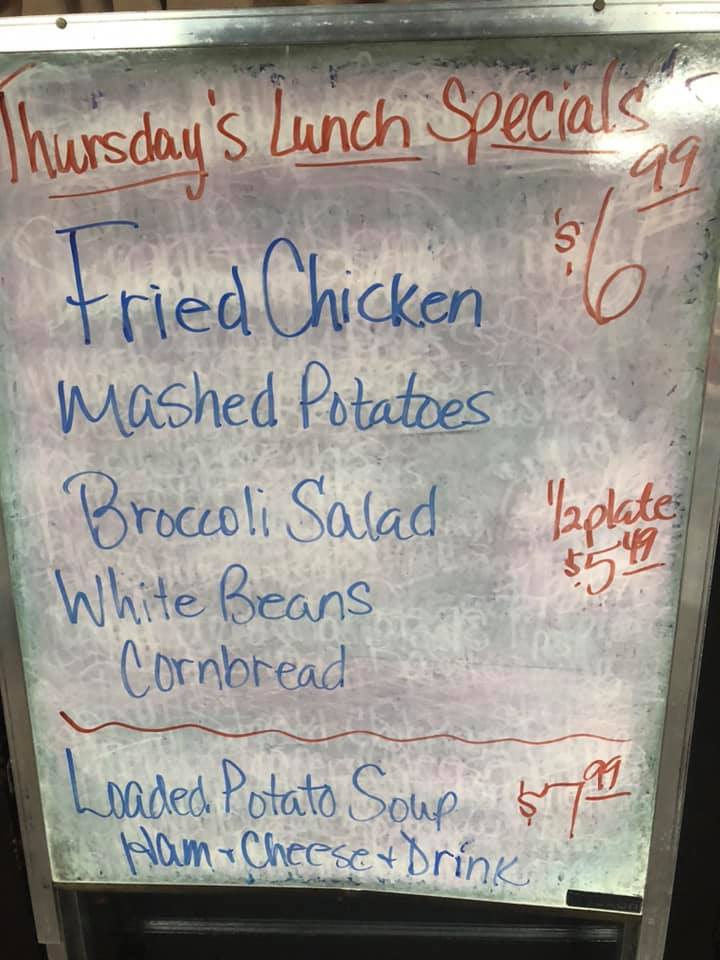 Thursday's Lunch Specials
$6.99
Fried Chicken
Mashed Potatoes
Broccoli Salad
1/2 plate
$5.49
White Beans
Cornbread
Loaded Potato Soup $7.99
Ham + Cheese + Drink